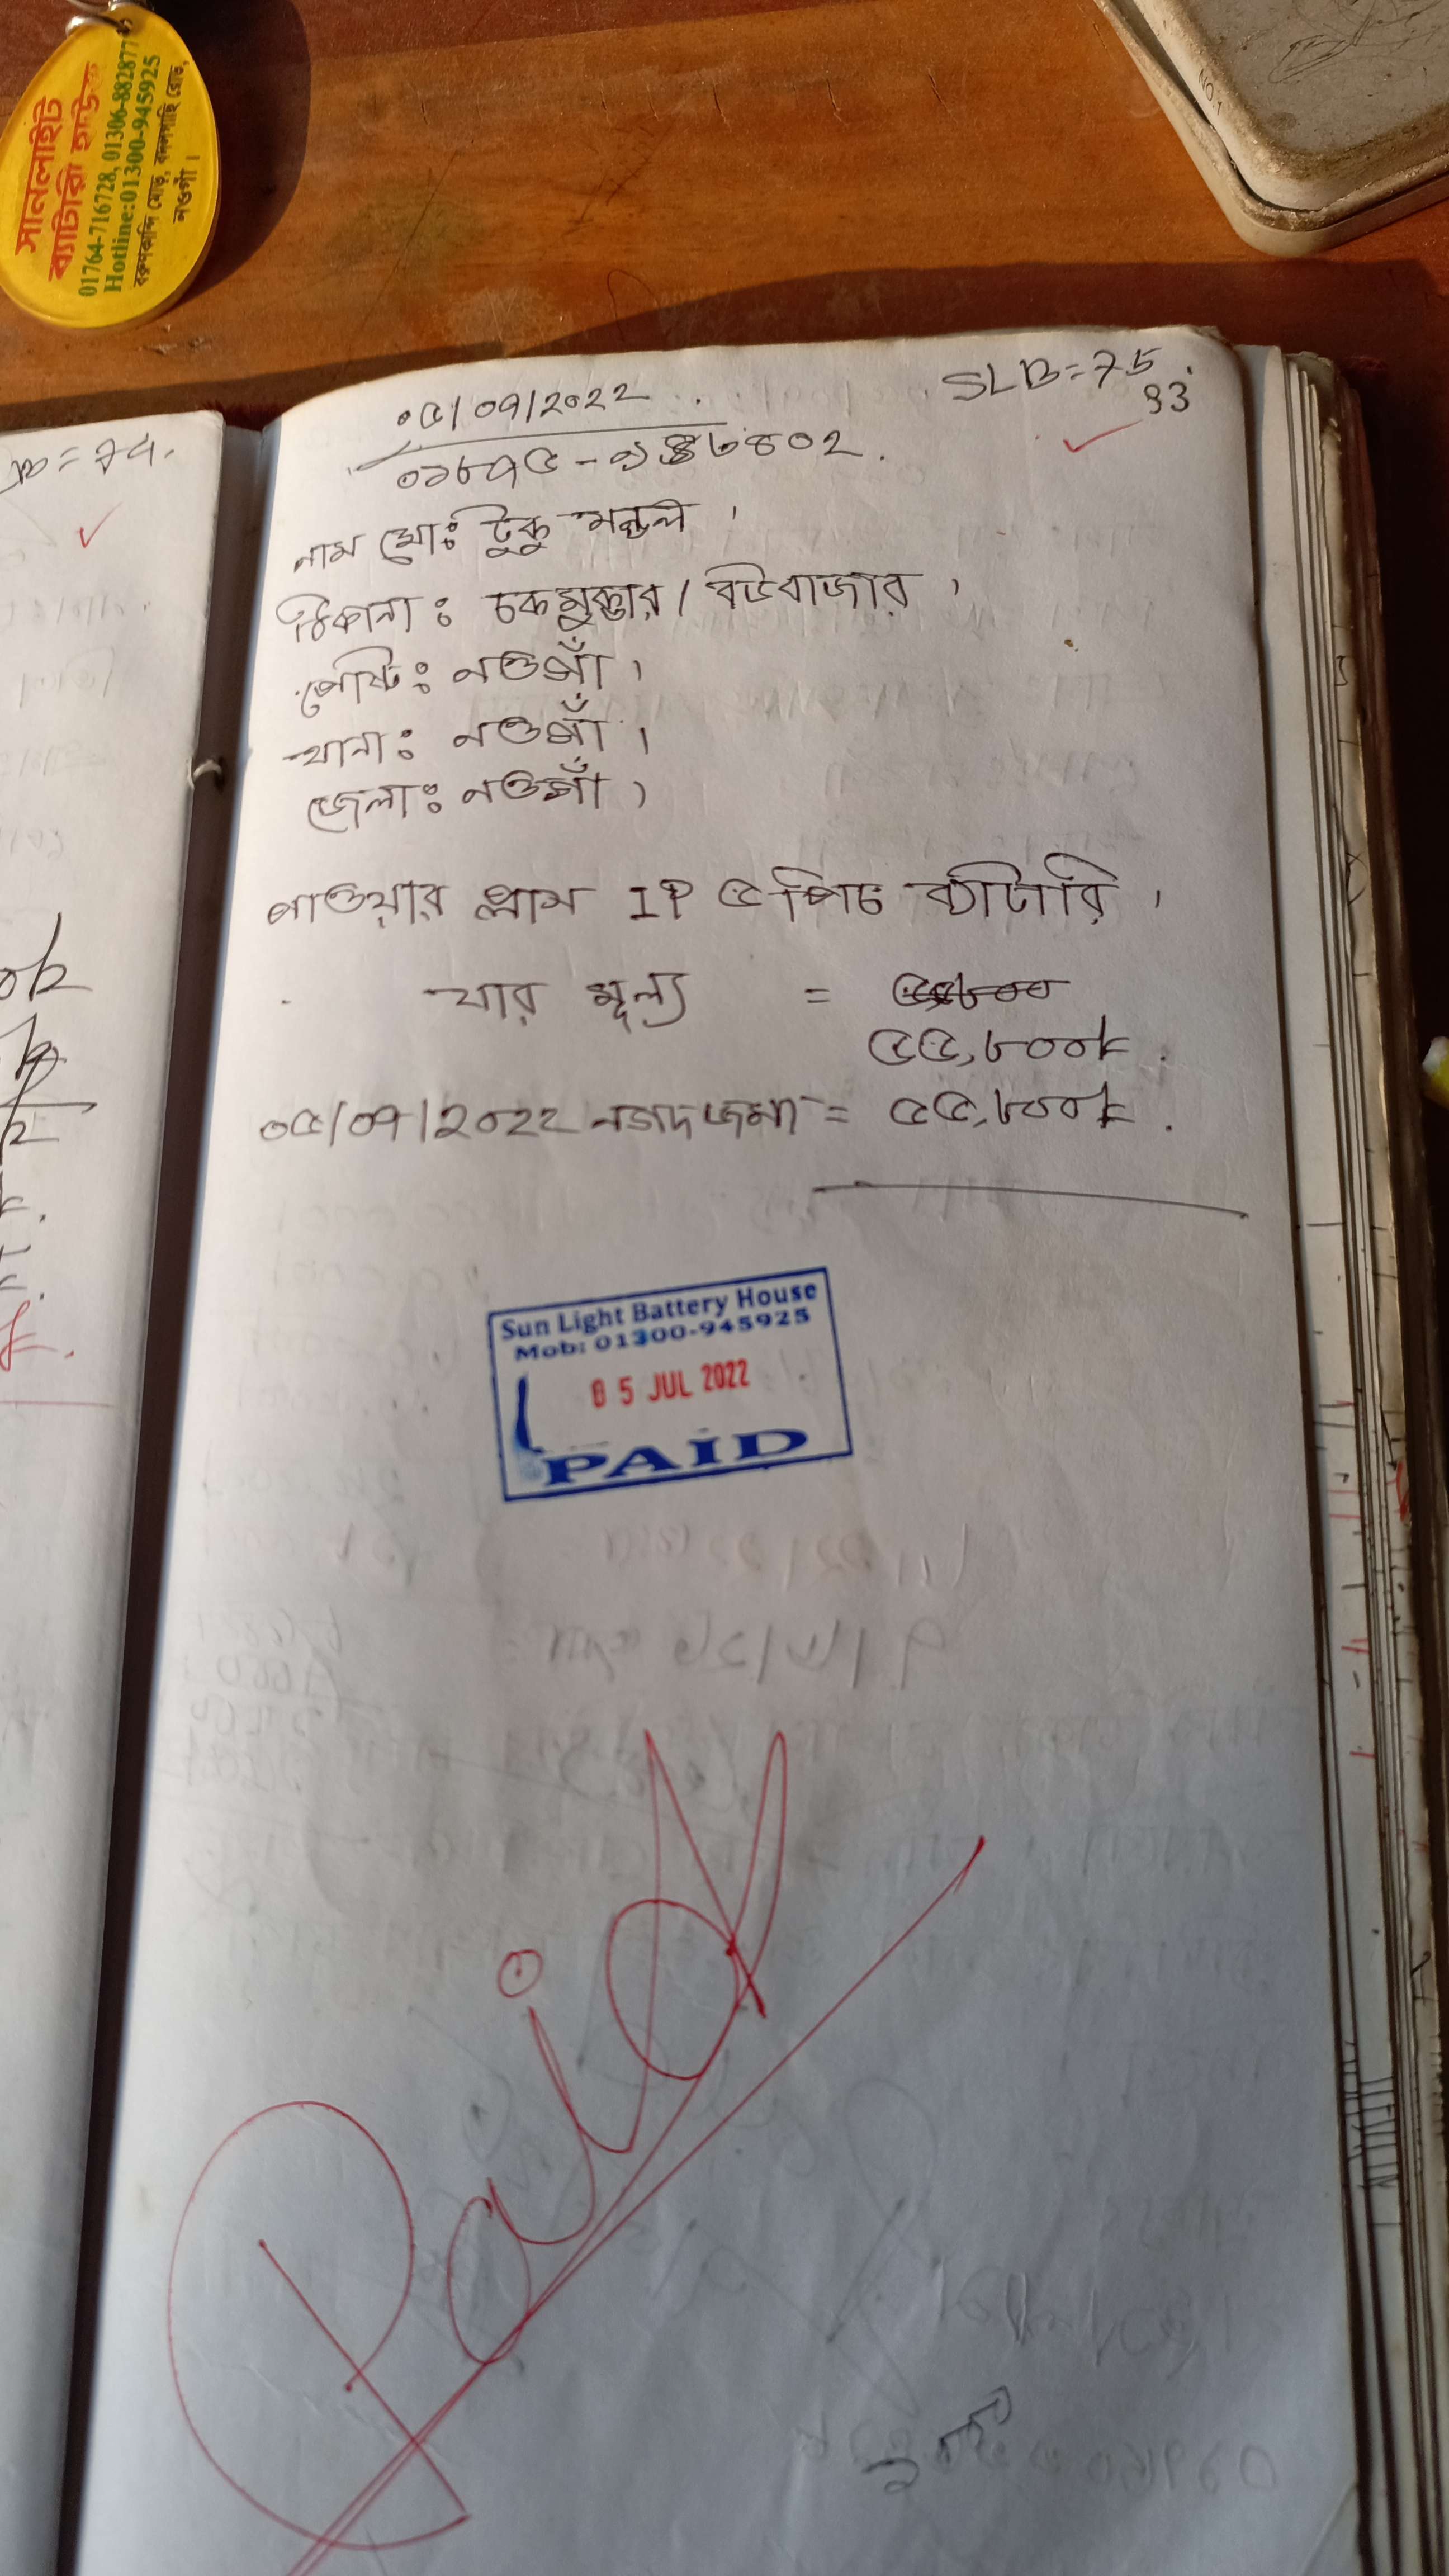 সানলাইট
ব্যাটারী হাউজ
01764-716728, 01306-882877
Hotline:01300-945925
নওগাঁ।
SLB=75
০৫/০৭/২০২২
93
নাম মোঃ টুকু মন্ডল।
ঠিকানাঃ চকমুক্তার/বউবাজার।
পোষ্টঃ নওগাঁ।
থানাঃ নওগাঁ।
জেলাঃ নওগাঁ।
পাওয়ার প্লাস IP ৫ পিচ ব্যাটারি।
যার মূল্য =
৫৫,৮০০/=
০৫/০৭/২০২২ নগদ জমা = ৫৫,৮০০/=
Sun Light Battery House
Mob: 01300-945925
05 JUL 2022
PAID
Paid
NO.1